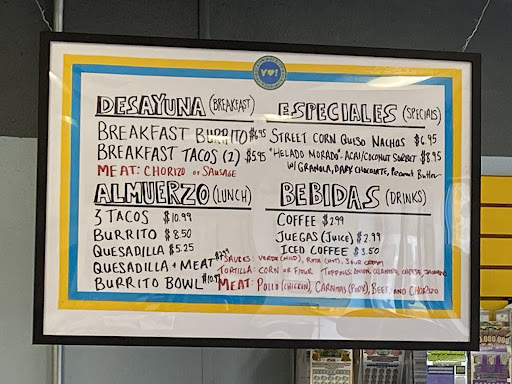 YO!
DESAYUNA (BREAKFAST)
BREAKFAST BURRITO $6.95
BREAKFAST TACOS (2) $5.95
MEAT: CHORIZO or SAUSAGE
ALMUERZO (LUNCH)
3 TACOS $10.99
BURRITO $8.50
QUESADILLA $5.25
QUESADILLA + MEAT
BURRITO BOWL
ESPECIALES (SPECIALS)
STREET CORN QUISO NACHOS $6.95
"HELADO MORADO"- ACAI/COCONUT SORBET $8.95
W/ GRANOLA, DARK CHOCOLATE, Peanut Butter
BEBIDAS (DRINKS)
COFFEE $2.99
JUEGAS (JUICE) $2.99
ICED COFFEE $3.50
SAUCES: VERDE (MILD), ROJA (HOT), SOUR CREAM
TORTILLA: CORN OR FLOUR TOPPINGS: ONION, CILANTRO, CHEESE, JALAPENO
MEAT: POLLO (CHICKEN), CARNITAS (PORK), BEEF, AND CHORIZO